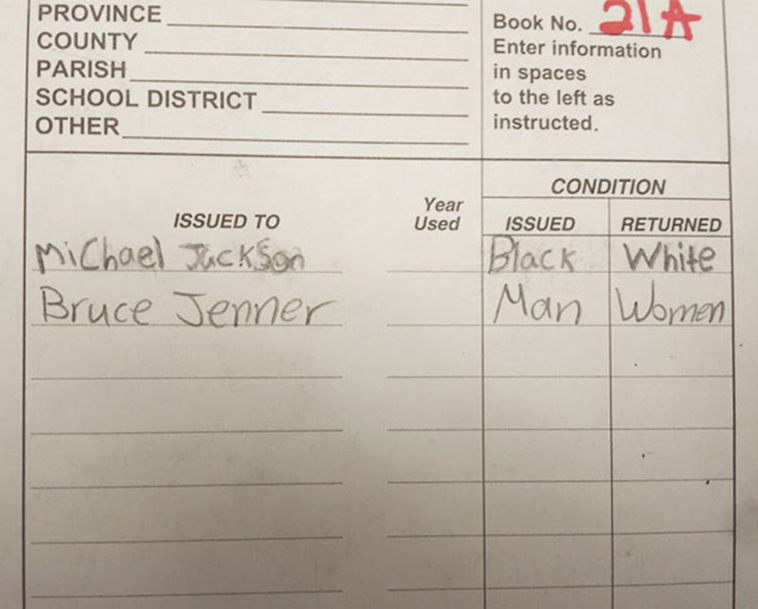 PROVINCE
COUNTY
PARISH
SCHOOL DISTRICT
OTHER
Book No. 21A
Enter information
in spaces
to the left as
instructed.
CONDITION
ISSUED TO Year Used ISSUED RETURNED
Michael Jackson Black White
Bruce Jenner Man Women